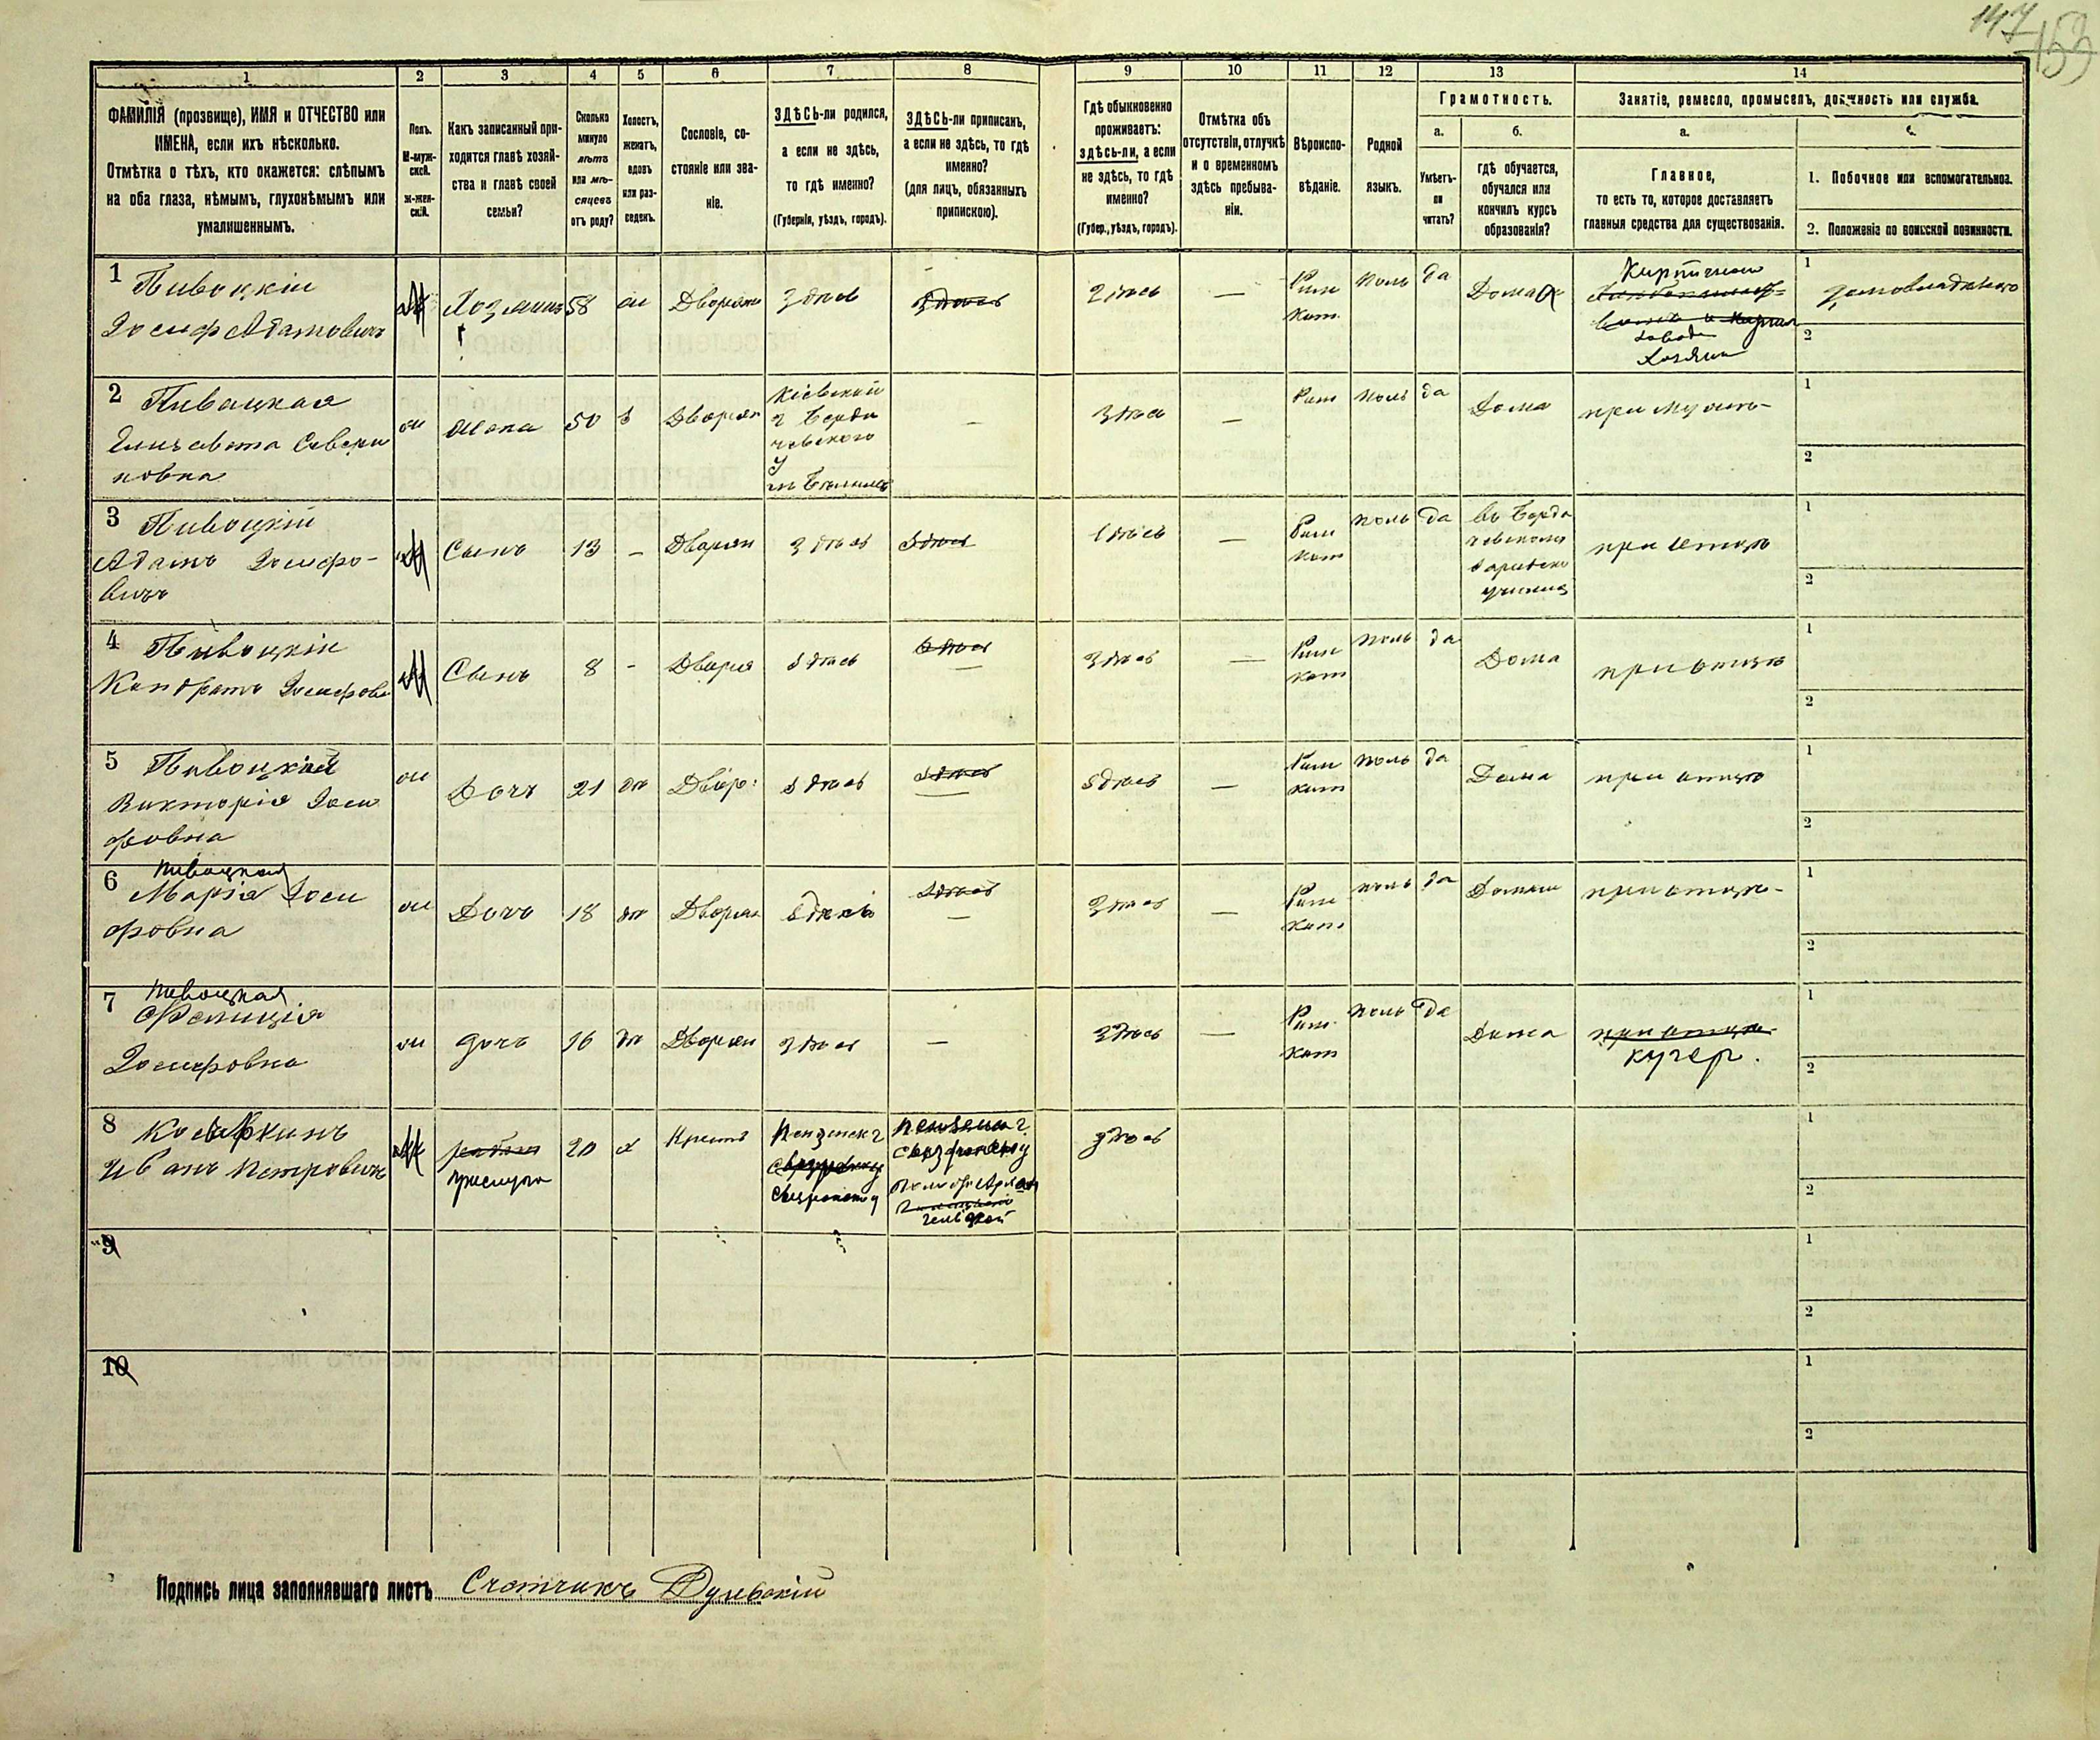 147
153
1 2 3 4 5 6 7 8 9 10 11 12 13 14
ФАМИЛІЯ (прозвище), ИМЯ и ОТЧЕСТВО или
ИМЕНА, если ихъ нѣсколько.
Отмѣтка о тѣхъ, кто окажется: слѣпымъ
на оба глаза, нѣмымъ, глухонѣмымъ или
умалишеннымъ.
Полъ.
М-муж-
ской.
ж-жен-
скій.
Какъ записанный при-
ходится главѣ хозяй-
ства и главѣ своей
семьи?
Сколько
минуло
лѣтъ
или мѣ-
сяцевъ
отъ роду?
Холостъ,
женатъ,
вдовъ
или раз-
веденъ.
Сословіе, со-
стояніе или зва-
ніе.
ЗДѢСЬ-ли родился,
а если не здѣсь,
то гдѣ именно?
(Губернія, уѣздъ, городъ).
ЗДѢСЬ-ли приписанъ,
а если не здѣсь, то гдѣ
именно?
(для лицъ, обязанныхъ
припискою).
Гдѣ обыкновенно
проживаетъ:
здѣсь-ли, а если
не здѣсь, то гдѣ
именно?
(Губер., уѣздъ, городъ).
Отмѣтка объ
отсутствіи, отлучкѣ
и о временномъ
здѣсь пребыва-
ніи.
Вѣроиспо-
вѣданіе.
Родной
языкъ.
Грамотность.
а.
Умѣетъ-
ли
читать?
б.
гдѣ обучается,
обучался или
кончилъ курсъ
образованія?
Занятіе, ремесло, промыселъ, должность или служба.
а.
Главное,
то есть то, которое доставляетъ
главныя средства для существованія.
1. Побочное или вспомогательное.
2. Положеніе по воинской повинности.
1 Пивоцкій
Іосифъ Адамовичъ
М
Хозяинъ
58
Дворян
Здѣсь
Здѣсь
Здѣсь
—
Рим
кат.
поль
да
Дома
Завода
Хозяин
1
2
2 Пивоцкая
Елизавета Севери
новна
жена
50
Дворян
Кіевской
г Берди
чевского
у
—
Здѣсь
—
Рим
поль
да
Дома
при мужѣ-
1
2
3 Пивоцкій
Адамъ Іосифо-
вичъ
М
Сынъ
13
–
Дворян
Здѣсь
Здѣсь
Здѣсь
—
Рим
кат
поль
да
въ Берди
при отцѣ
1
2
4 Пивоцкій
Кондратъ Іосифов
М
Сынъ
8
-
Дворя
Здѣсь
Здѣсь
—
Здѣсь
—
Рим
кат
поль
да
Дома
при отцѣ
1
2
5 Пивоцкая
Викторія Іоси
фовна
Дочь
21
Двор:
Здѣсь
Здѣсь
—
Здѣсь
—
Рим
кат
поль
да
Дома
при отцѣ
1
2
6 Пивоцкая
Марія Іоси
фовна
Дочь
18
Дворян
Здѣсь
Здѣсь
—
Здѣсь
—
Рим
кат
поль
да
при отцѣ-
1
2
7 Пивоцкая
Фелиція
Іосифовна
дочь
16
Дворян
Здѣсь
—
Здѣсь
—
Рим.
кат
поль
да
Дома
при отцѣ
кучер.
1
2
8
Иванъ Петровичъ
М
прислуга
20
х
Крест
Пензенск г
Здѣсь
1
2
9
1
2
10
1
2
Подпись лица заполнявшаго листъ Счетчикъ Дульскій